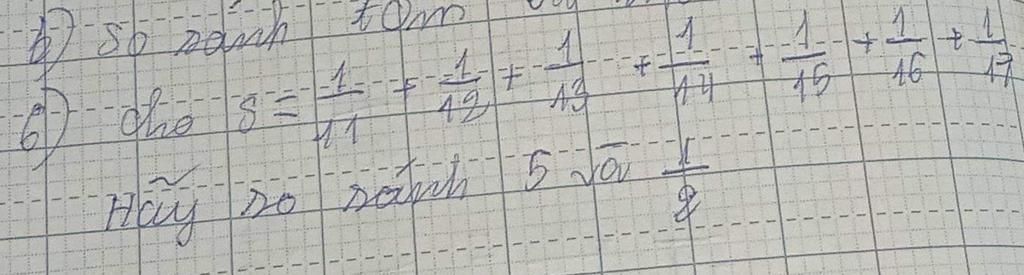 b) so sánh tóm
6) cho S = 1/11 + 1/12 + 1/13 + 1/14 + 1/15 + 1/16 + 1/17
Hãy so sánh S và 1/2